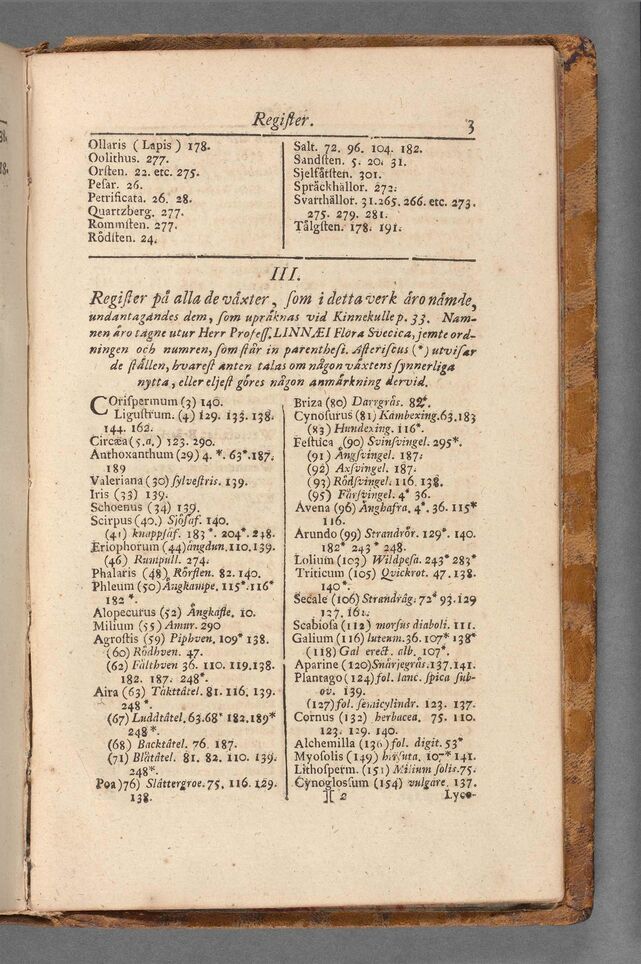 Regiſter. 3
Ollaris (Lapis) 178.
Oolithus. 277.
Orſten. 22. etc. 275.
Peſar. 26.
Petrificata. 26. 28.
Quartzberg. 277.
Rommſten. 277.
Rödſten. 24.
Salt. 72. 96. 104. 182.
Sandſten. 5. 20. 31.
Sjelfåtſten. 301.
Spräckhällor. 272.
Svarthällor. 31. 265. 266. etc. 273.
275. 279. 281.
Tålgſten. 178. 191.
III.
Regiſter på alla de växter, ſom i detta verk äro nämde,
undantagandes dem, ſom upräknas vid Kinnekulle p. 33. Nam-
nen äro tagne utur Herr Profeſſ. LINNÆI Flora Svecica, jemte ord-
ningen och numren, ſom ſtår in parentheſi. Aſteriſcus (*) utviſar
de ſtällen, hvareſt anten talas om någon växtens ſynnerliga
nytta, eller eljeſt göres någon anmärkning dervid.
COriſpermum (3) 140.
Liguſtrum. (4) 129. 133. 138.
144. 162.
Circæa (5.a.) 123. 290.
Anthoxanthum (29) 4. *. 63*. 187.
189
Valeriana (30) ſylveſtris. 139.
Iris (33) 139.
Schoenus (34) 139.
Scirpus (40.) Sjöſaf. 140.
(41) knappſäf. 183*. 204*. 248.
Eriophorum (44) ängdun. 110. 139.
(46) Rumpull. 274.
Phalaris (48) Rörflen. 82. 140.
Phleum (50) Ängkampe. 115*. 116*
182*.
Alopecurus (52) Ängkaſle. 10.
Milium (55) Amur. 290
Agroſtis (59) Piphven. 109* 138.
(60) Rödhven. 47.
(62) Fälthven 36. 110. 119. 138.
182. 187. 248*.
Aira (63) Täkttåtel. 81. 116. 139.
248*.
(67) Luddtåtel. 63. 68* 182. 189*
248*.
(68) Backtåtel. 76. 187.
(71) Blåtåtel. 81. 82. 110. 139.
248*.
Poa )76) Slåttergroe. 75. 116. 129.
138.
Briza (80) Darrgräs. 82*.
Cynoſurus (81) Kambexing. 63. 183
(83) Hundexing. 116*.
Feſtuca (90) Svinſvingel. 295*.
(91) Ängſvingel. 187.
(92) Axſvingel. 187.
(93) Rödſvingel. 116. 138.
(95) Fårſvingel. 4* 36.
Avena (96) Änghafra. 4*. 36. 115*
116.
Arundo (99) Strandrör. 129*. 140.
182* 243* 248.
Lolium (103) Wildpeſa. 243* 283*
Triticum (105) Qvickrot. 47. 138.
140*.
Secale (106) Strandråg. 72* 93. 129
137. 161.
Scabioſa (112) morſus diaboli. 111.
Galium (116) luteum. 36. 107* 138*
(118) Gal erect. alb. 107*.
Aparine (120) Snärjegräs. 137. 141.
Plantago (124) fol. lanc. ſpica ſub-
ov. 139.
(127) fol. ſemicylindr. 123. 137.
Cornus (132) herbacea. 75. 110.
123. 129. 140.
Alchemilla (136) fol. digit. 53*
Myoſolis (149) hirſuta. 107* 141.
Lithoſperm. (151) Milium ſolis. 75.
Cynogloſſum (154) vulgare. 137.
][ 2 Lyco-